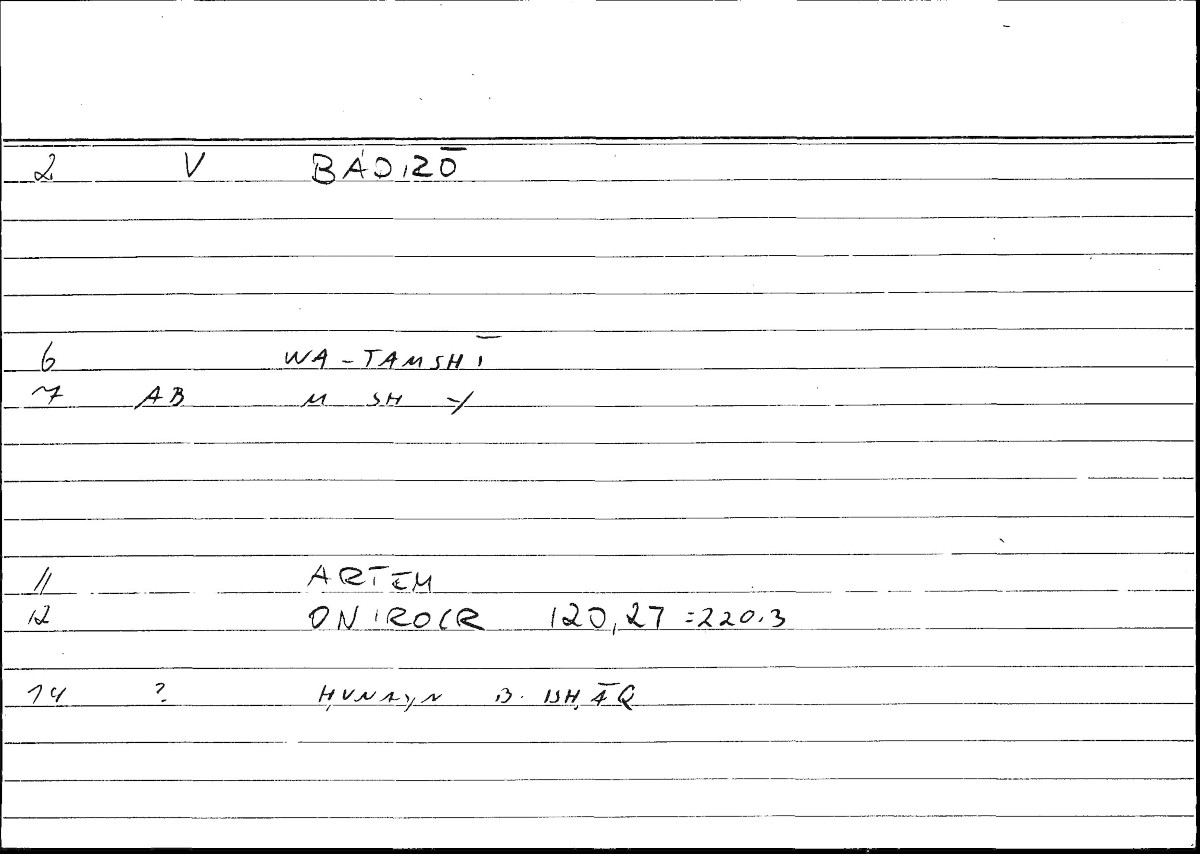 2 V BADIZŌ
6 WA-TAMSHĪ
7 AB M SH Y
11 ARTEM
12 ONIROCR 120,27=220.3
14 ? ḤUNAYN B. ISḤĀQ